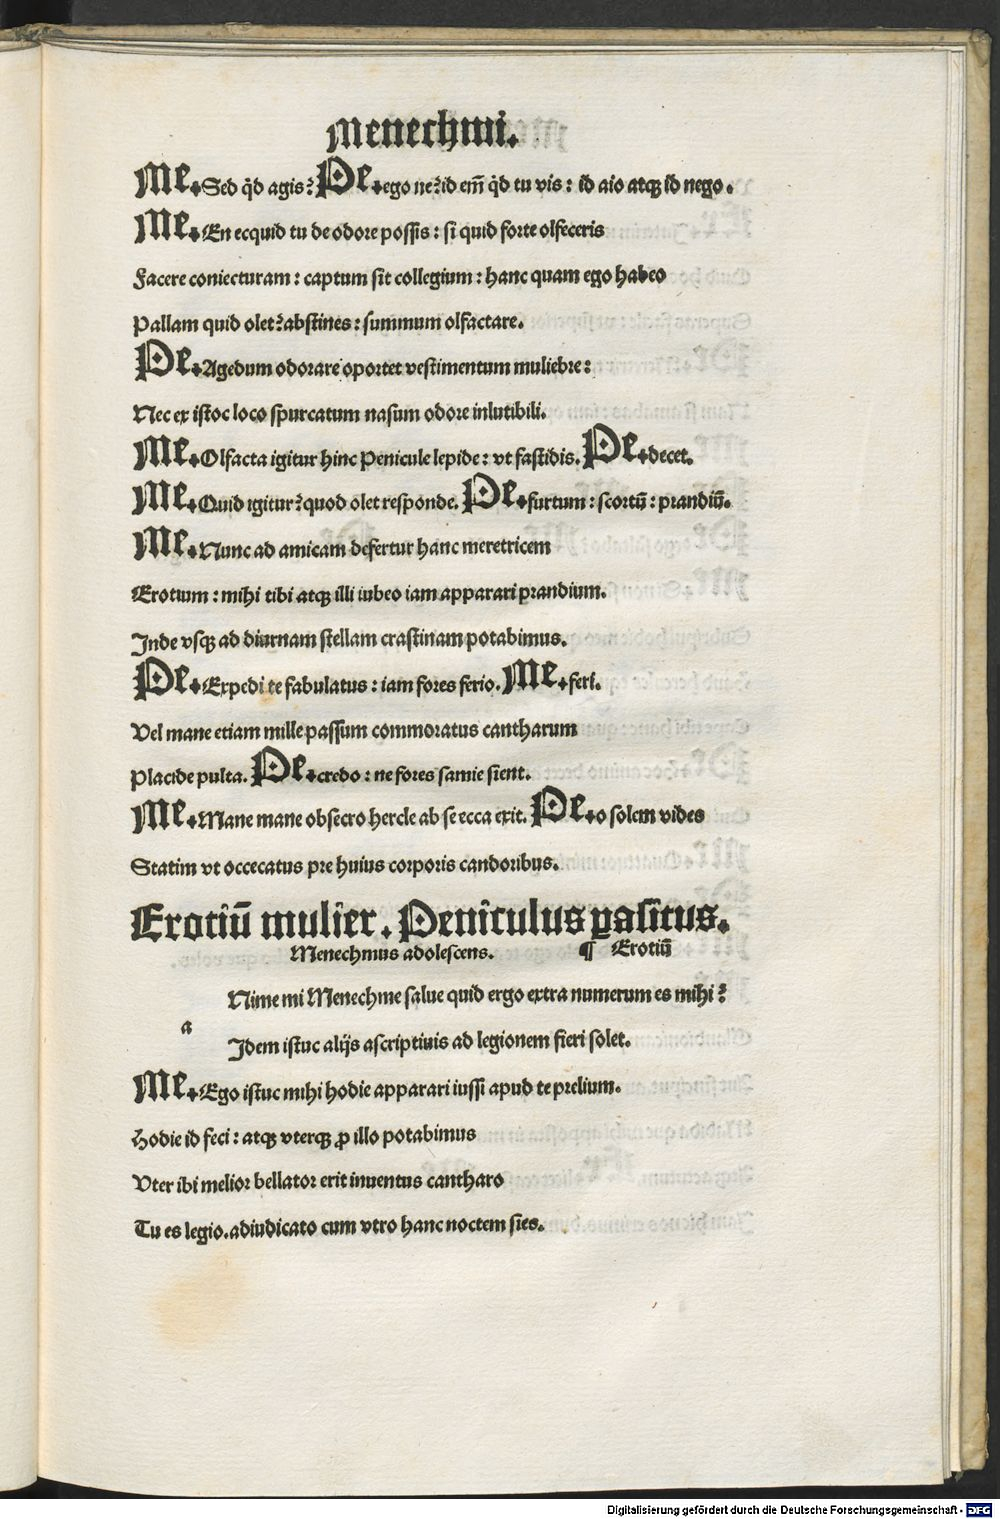 Menechmi.
Me. Sed q̇d agis? Pe. ego ne? id em̄ q̇d tu vis: id aio atqꝫ id nego.
Me. En ecquid tu de odore possis: si quid forte olfeceris
Facere coniecturam: captum sit collegium: hanc quam ego habeo
Pallam quid olet? abstines: summum olfactare.
Pe. Agedum odorare oportet vestimentum muliebre:
Nec ex istoc loco spurcatum nasum odore inlutibili.
Me. Olfacta igitur hinc Penicule lepide: vt fastidis. Pe. decet.
Me. Quid igitur? quod olet responde. Pe. furtum: scortū: prandiū.
Me. Nunc ad amicam defertur hanc meretricem
Erotium: mihi tibi atqꝫ illi iubeo iam apparari prandium.
Inde vsqꝫ ad diurnam stellam crastinam potabimus.
Pe. Expedi te fabulatus: iam fores ferio. Me. feri.
Vel mane etiam mille passum commoratus cantharum
Placide pulta. Pe. credo: ne fores samie sient.
Me. Mane mane obsecro hercle ab se ecca exit. Pe. o solem vides
Statim vt occecatus pre huius corporis candoribus.
Erotiū mulier. Peniculus pasitus.
Menechmus adolescens. ¶ Erotiū
Nime mi Menechme salue quid ergo extra numerum es mihi?
a
Idem istuc alijs ascriptiuis ad legionem fieri solet.
Me. Ego istuc mihi hodie apparari iussi apud te prelium.
Hodie id feci: atqꝫ vterqꝫ ꝓ illo potabimus
Vter ibi melior bellator erit inuentus cantharo
Tu es legio. adiudicato cum vtro hanc noctem sies.
Digitalisierung gefördert durch die Deutsche Forschungsgemeinschaft - DFG